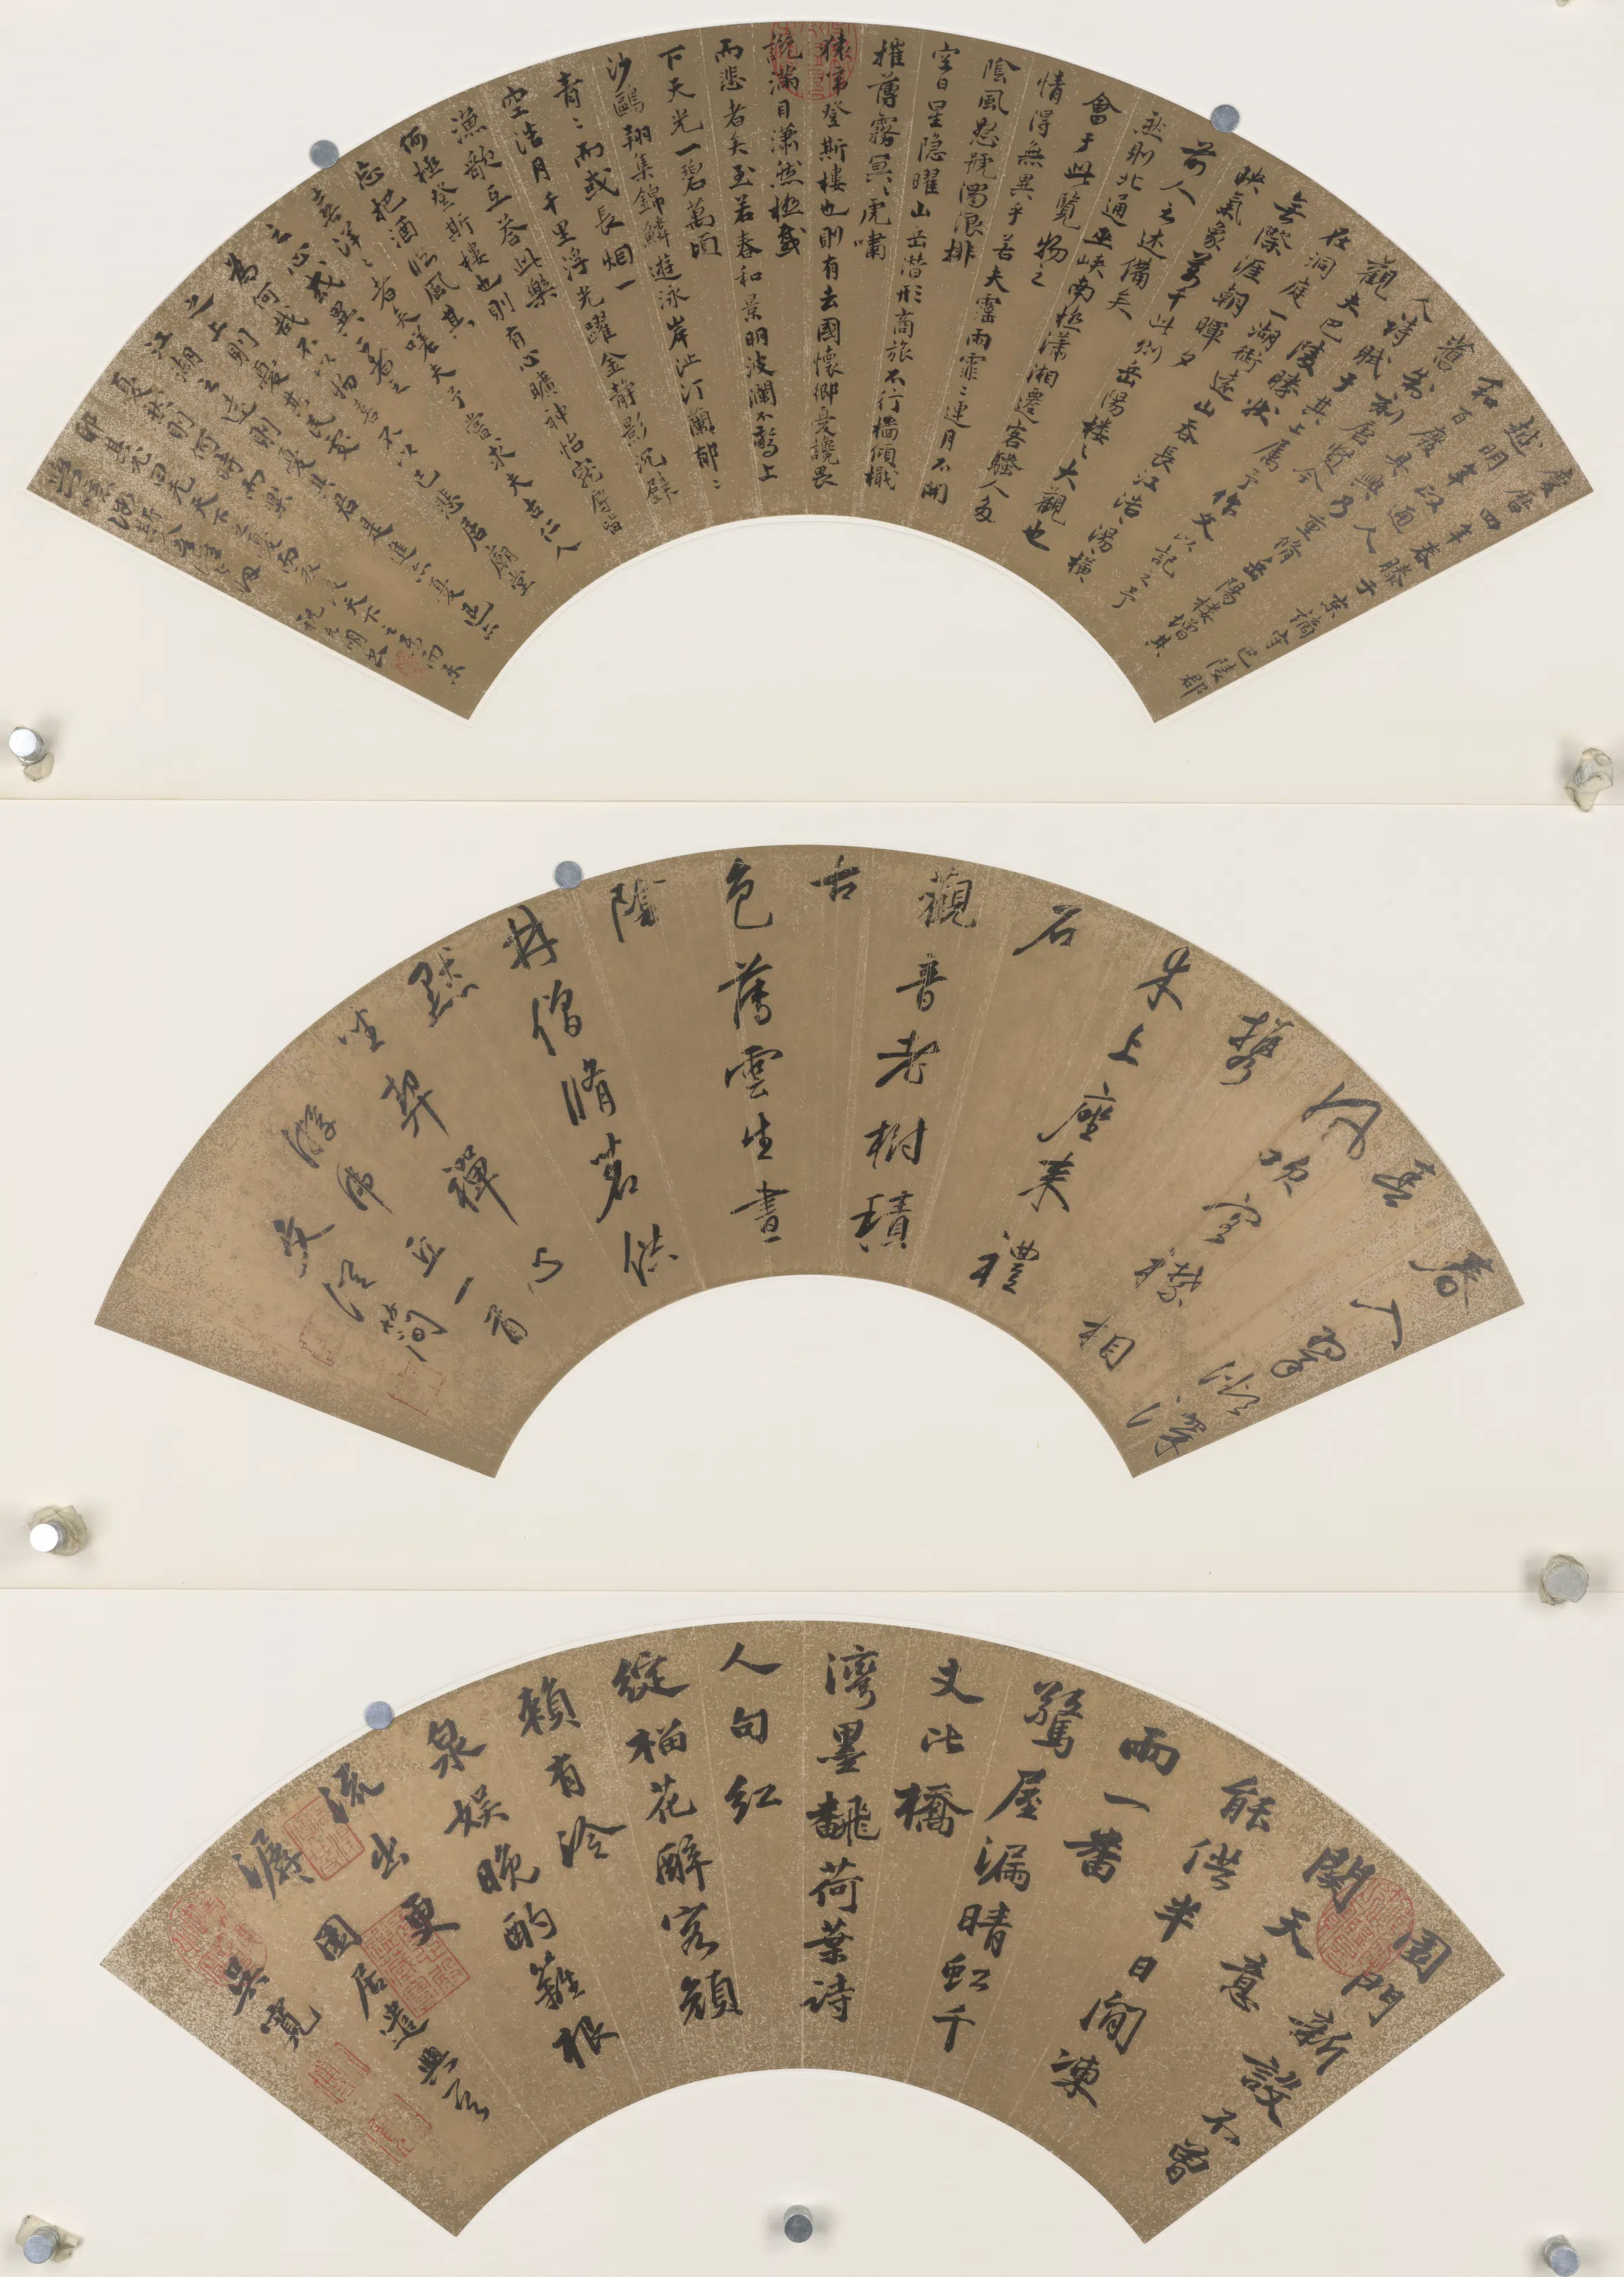 慶曆四年春滕子京謫守巴陵郡
越明年政通人
和百廢具興乃重脩岳陽樓增其
舊制刻唐賢今
人詩賦于其上属予作文以記之予
觀夫巴陵勝狀
在洞庭一湖銜遠山吞長江浩浩湯湯橫
無際涯朝暉夕
映氣象萬千此則岳陽樓之大觀也
前人之述備矣
然則北通巫峽南極瀟湘遷客騷人多
會于此覽物之
情得無異乎若夫霪雨霏〻連月不開
陰風怒號濁浪排
空日星隐曜山岳潛形商旅不行檣傾檝
摧薄霧冥〻虎嘯
猿啼登斯樓也則有去國懷鄉憂讒畏
譏滿目瀟然極感
而悲者矣至若春和景明波瀾不驚上
下天光一碧萬頃
沙鷗翔集錦鱗遊泳岸沚汀蘭郁〻
青〻而或長烟一
空浩月千里浮光躍金静影沉璧
漁歌互荅此樂
何極登斯樓也則有心曠神怡寵辱皆
忘把酒臨風其
喜洋〻者矣嗟夫予嘗求夫古仁人
之心或異二者之
為何哉不以物喜不以己悲居廟堂
之上則憂其民處
江湖之遠則憂其君是進亦憂退亦
憂然則何時而樂
耶其必曰先天下之憂而憂後天下之樂而樂
噫微斯人吾誰與歸
祝允明書
春
吹空襟相
攜
朱上座来禮
石
觀音老樹積
古
色薄雲生晝
陰
林僧脩茗供
默
坐契禪心
游虎丘一首
文從簡
園門新設不曾
關天意
能供半日閒凍
雨一番
驚屋漏晴虹千
丈比橋
灣墨翻荷葉詩
人句紅
綻榴花醉客顔
賴有冷
泉娱晚酌籬根
流出更
潺
園居遣興
吳寬